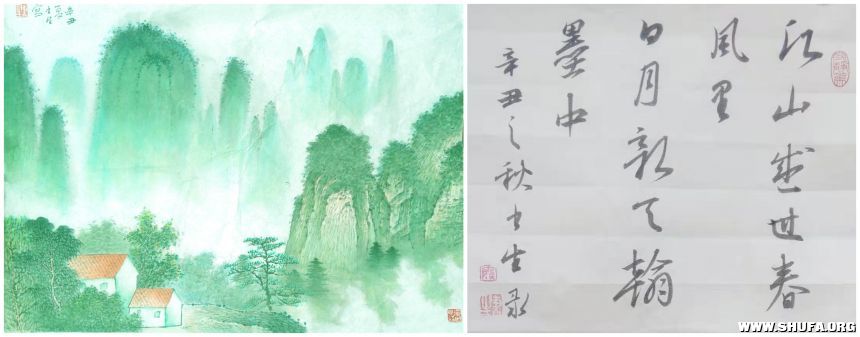 辛丑
夏
江山盛世春
風里
日月新天翰
墨中
辛丑之秋士生录
WWW.SHUFA.ORG